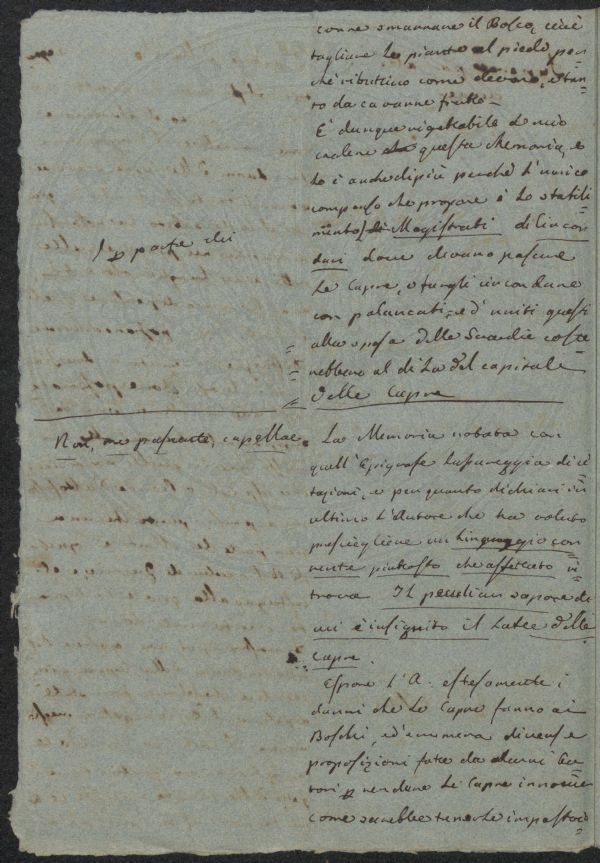 come smannare il Bosco, cioè
tagliare le piante al piede per
chè ributtino come devono, e tan=
to da cavarne frutto —
E' dunque rigettabile a mio
credere questa Memoria, e
lo è anche di più perchè l'unico
compenso che propone è lo stabili
mento di Magistrati di Circon
dari dove devano pascere
le Capre, e fargli circondare
con palancati, ed' uniti questi
alla spesa delle Guardie coste
rebbero al di là del capitale
delle Capre
per parte dei
Non, me pascente, capellae.
La Memoria notata con
quell' Epigrafe lussureggia di ci
tazioni, e per quanto dichiari in
ultimo l'Autore che ha voluto
prescegliere un linguaggio cor
rente piuttosto che affettato
trova Il
mi è insignito il Latte delle
Capre.
Espone l'A. estesamente i
danni che le Capre fanno ai
Boschi, ed' enumera diverse
proposizioni fatte da alcuni Au
tori per rendere le Capre innocue
come sarebbe tenerle impastoi